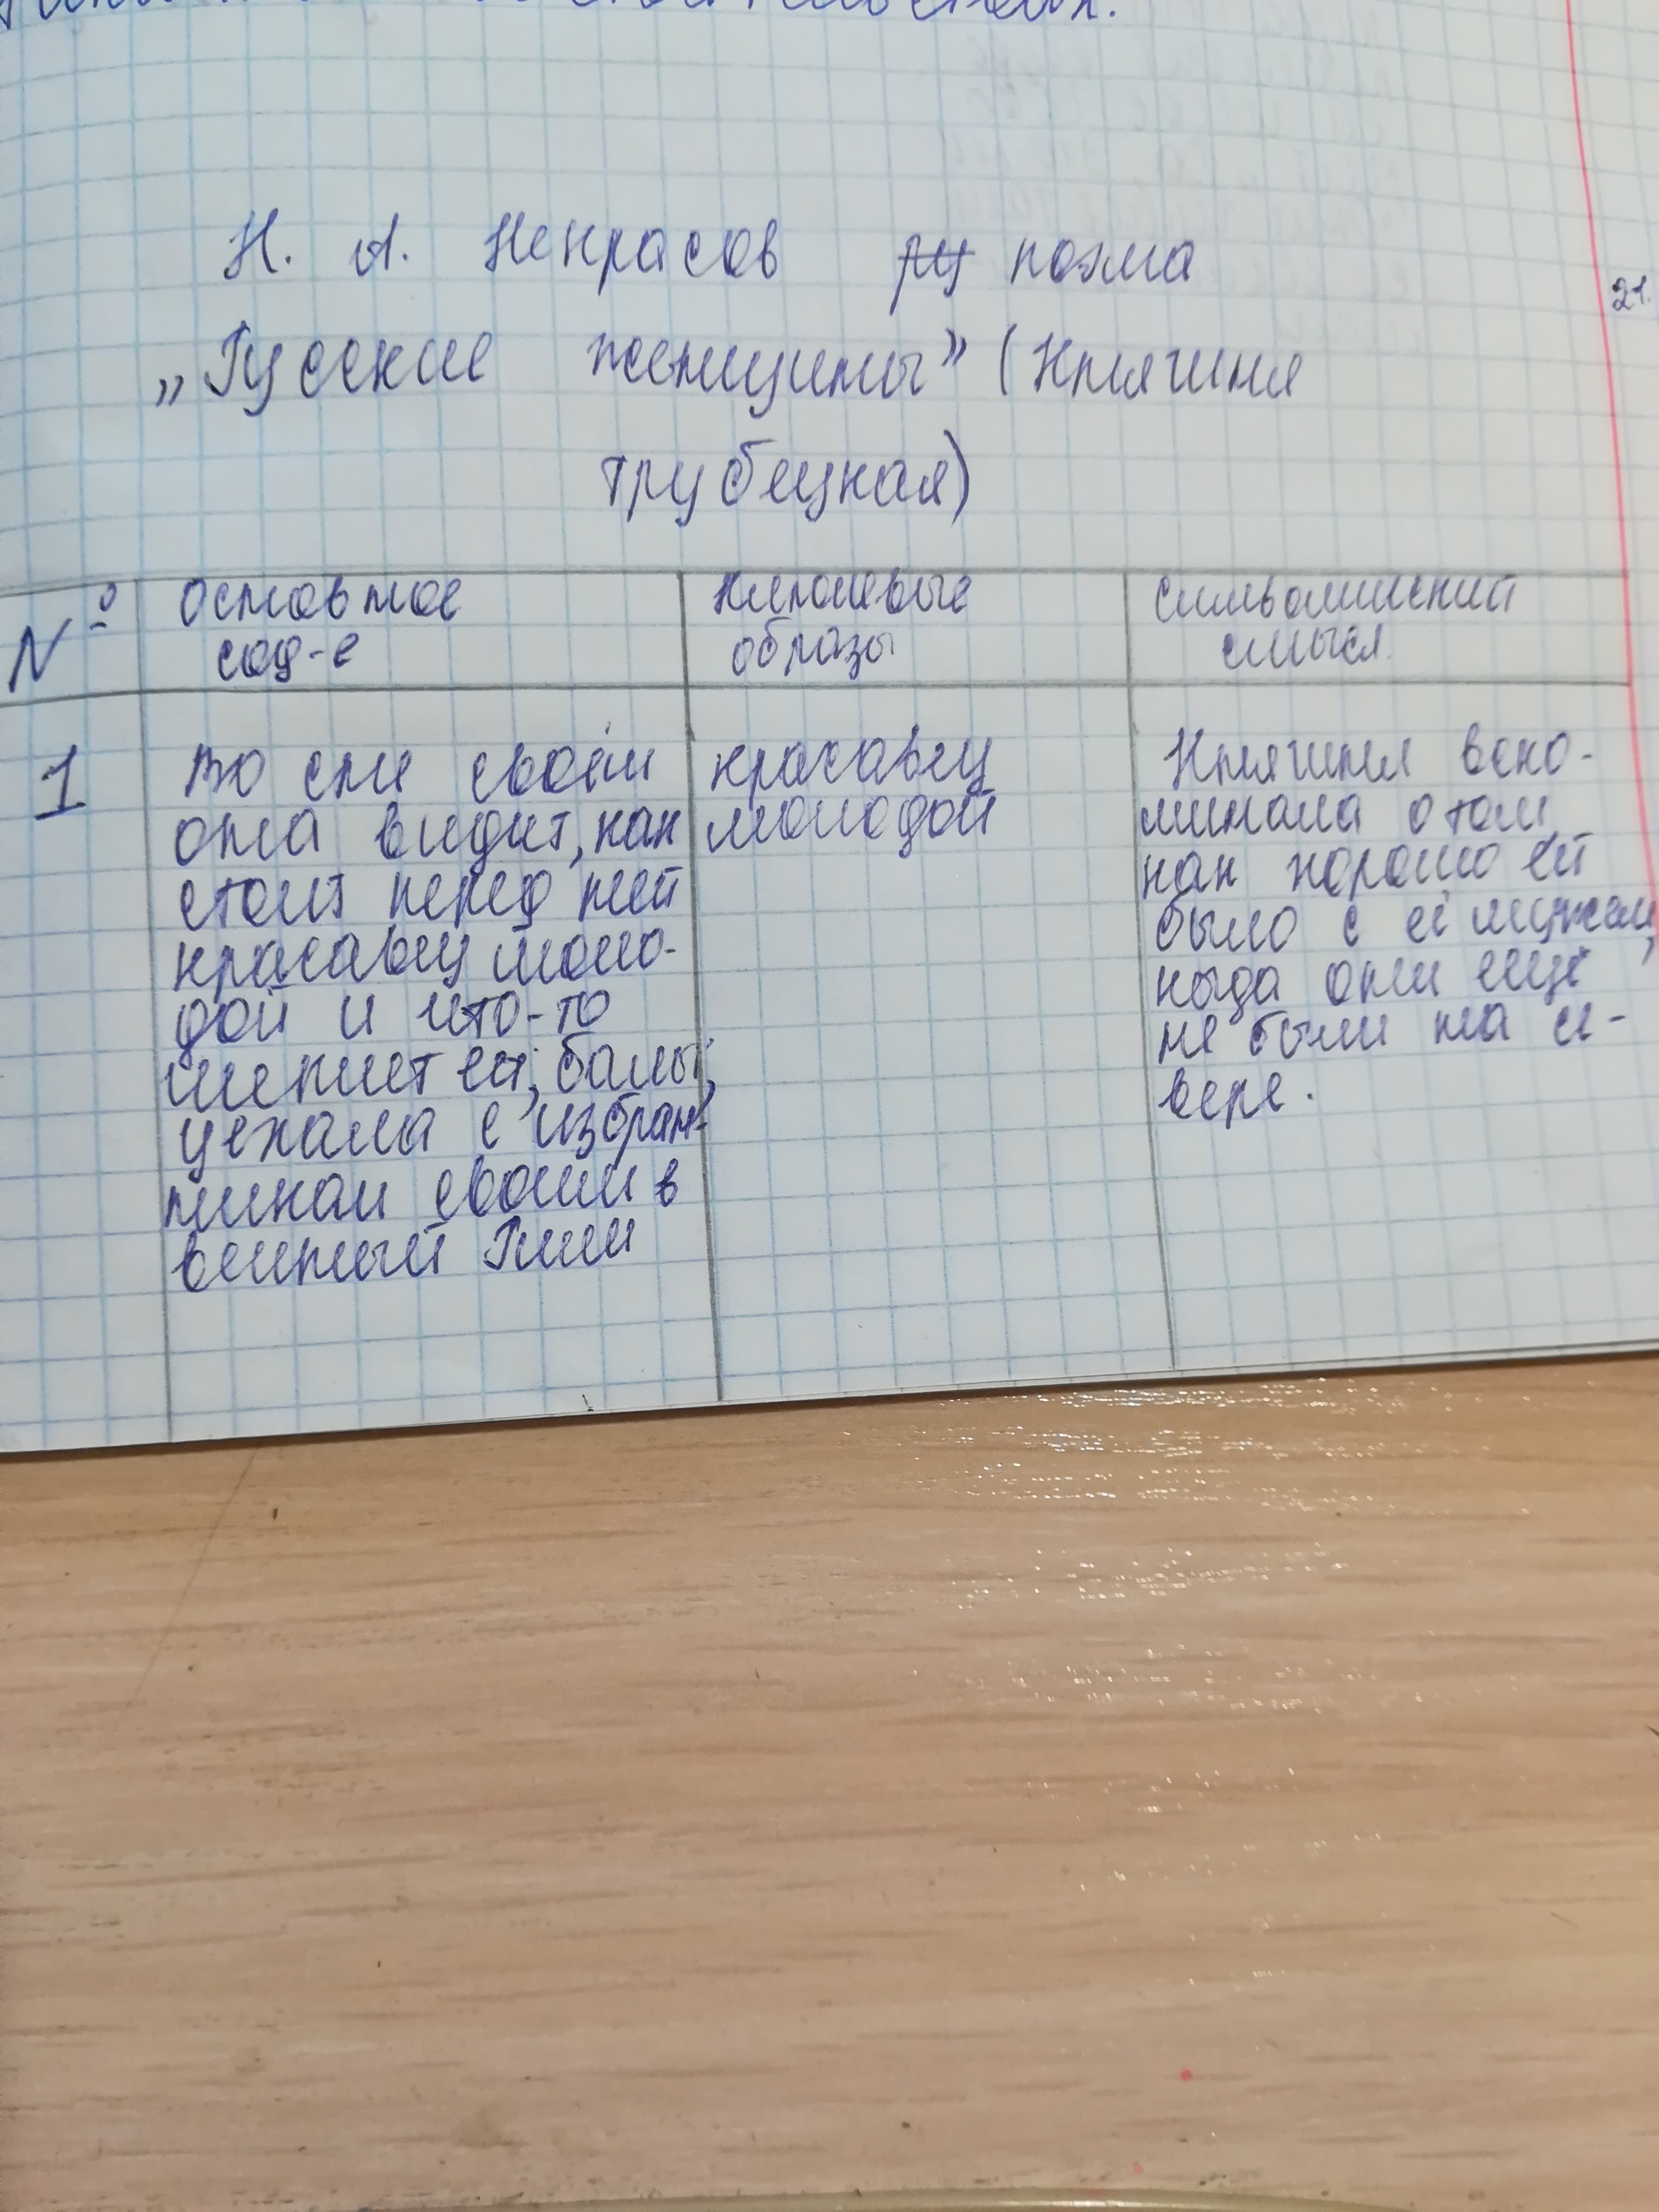 Н. А. Некрасов ру поэма
„Русские женщины” (Княгиня
трубецкая)
№ основное сод-е
ключевые образы
символический смысл
1
Во сне своём
она видит, как
стоит перед ней
красавец моло-
дой и что-то
шепчет ей; балы;
уехала с избран-
ником своим в
вечный Рим
красавец
молодой
Княгиня вспо-
минала о том
как хорошо ей
было с её мужем,
когда они ещё
не были на се-
вере.
21.